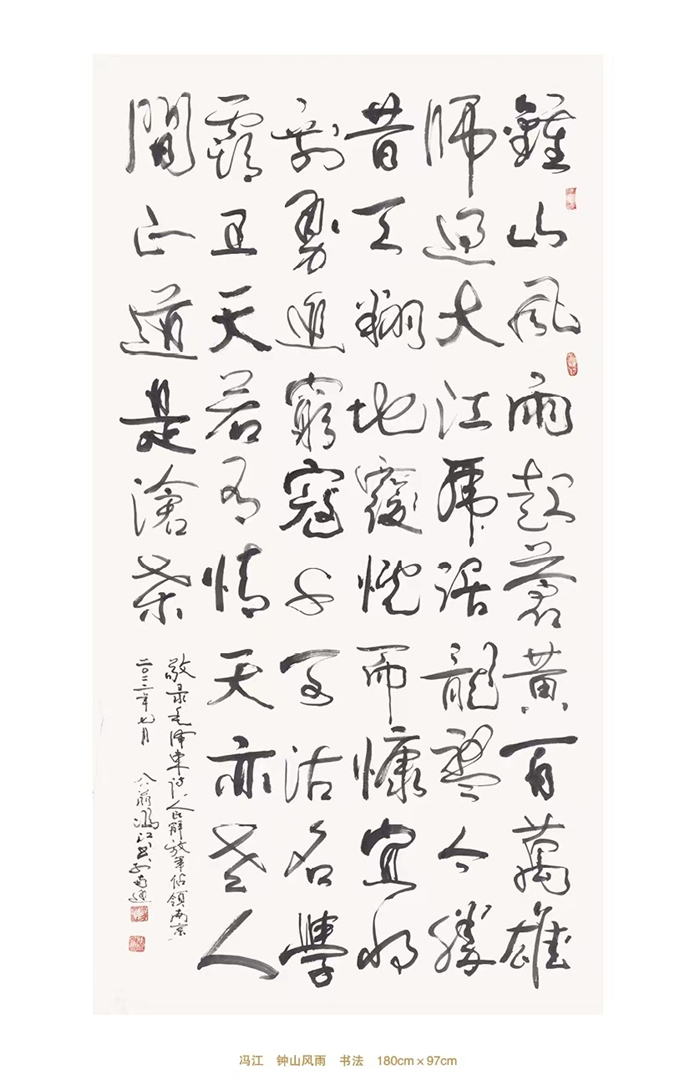 鍾山風雨起蒼黃百萬雄
師過大江虎踞龍盤今勝
昔天翻地覆慨而慷宜將
剩勇追窮寇不可沽名學
霸王天若有情天亦老人
間正道是滄桑
敬录毛泽東诗人民解放軍佔領南京
二〇二二年七月 馮江书于南通
冯江 钟山风雨 书法 180cm×97cm